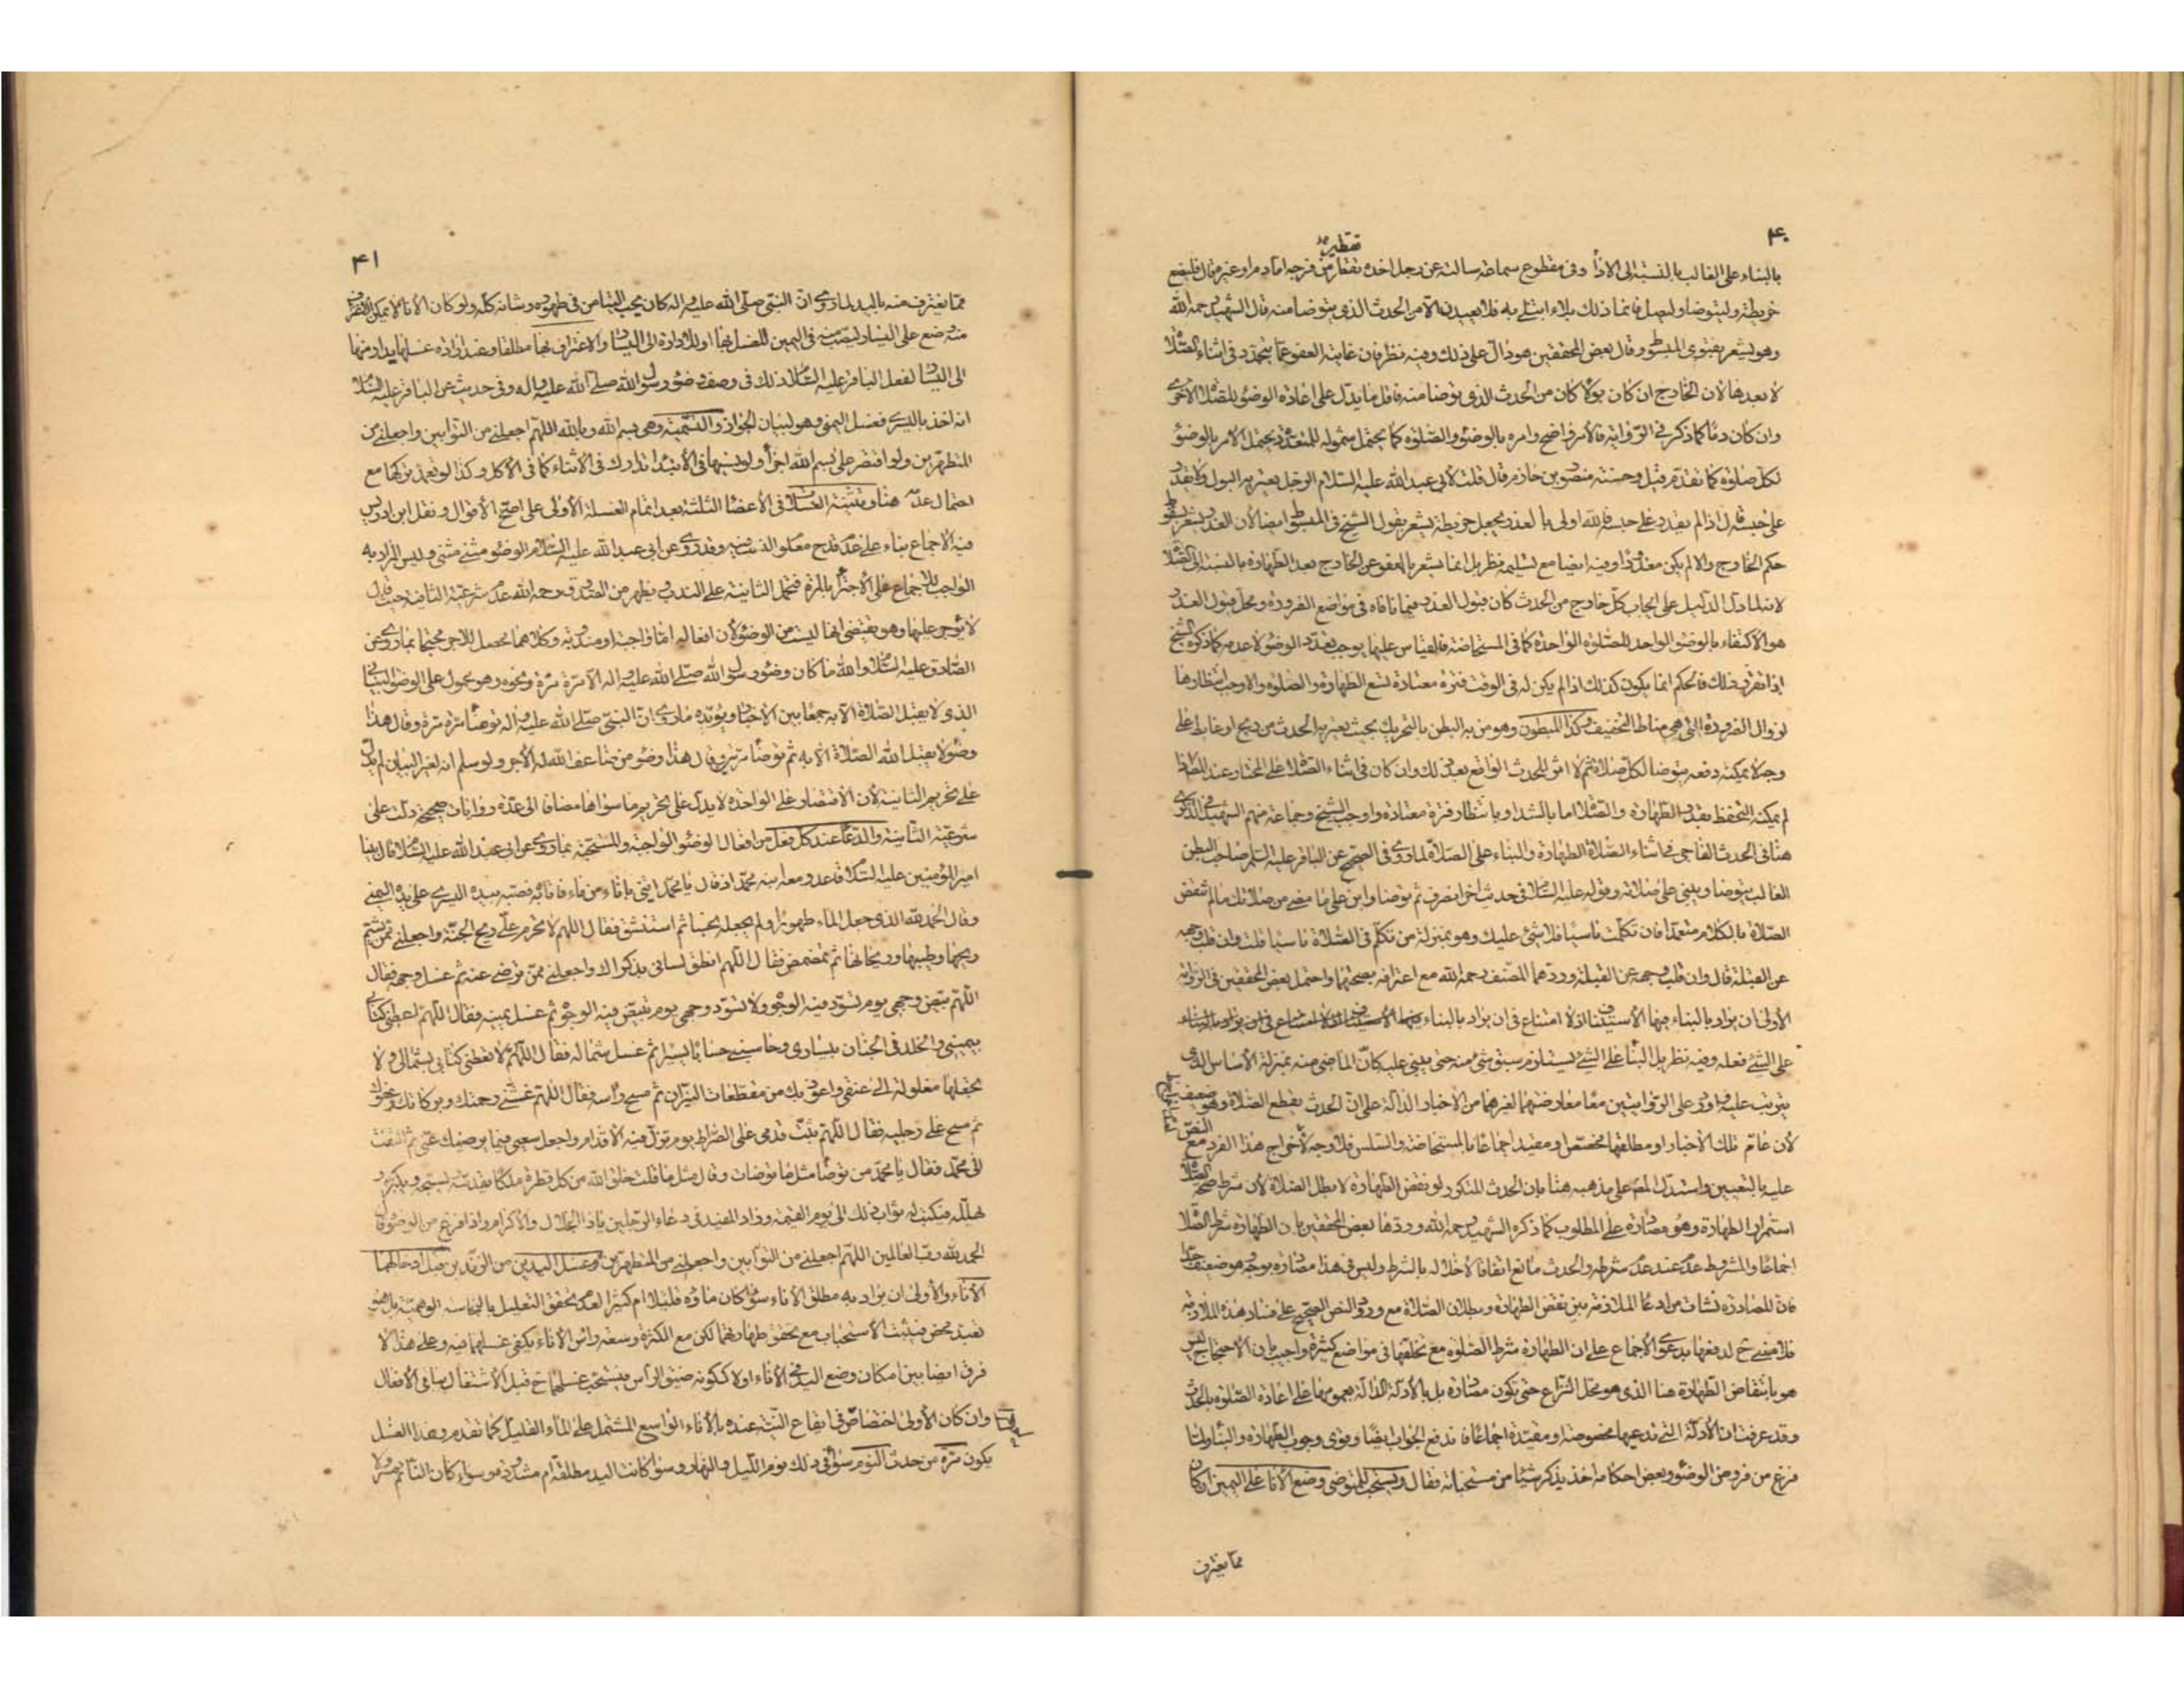 ۴۰
تقطير
بالبناء على الغالب بالنسبة الى الاذا وفى مقطوع سماعة سالته عن رجل اخذه تقطار من فرجه اما دم او غيره قال فليضع
خريطة وليتوضا وليصل فانما ذلك بلاء ابتلى به فلا يعيدن الا من الحدث الذى يتوضا منه قال الشهيد رحمه الله
وهو يشعر بفتوى المبسوط وقال بعض المحققين هو دال على ذلك وفيه نظر فان غايته العفو عما يتجدد فى اثناء الصلاة
لا بعدها لان الخارج ان كان بولا كان من الحدث الذى يتوضا منه فاقل ما يدل على اعادة الوضوء للصلاة الاخرى
وان كان دما كما ذكر فى الرواية فالامر واضح وامره بالوضوء والصلوة كما يحتمل شموله للمتعدد يحتمل الامر بالوضوء
لكل صلوة كما تقدم قبل وحسنة منصور بن حازم قال قلت لابى عبد الله عليه السلام الرجل يعتريه البول ولا يقدر
على حبسه قال اذا لم يقدر على حبسه فالله اولى بالعذر يجعل خريطة يشعر بقول الشيخ فى المبسوط ايضا لان العذر يشعر بسقوط
حكم الخارج والا لم يكن معذورا وفيه ايضا مع تسليمه نظر بل انما يشعر بالعفو عن الخارج بعد الطهارة بالنسبة الى الصلاة
لانه لما دل الدليل على ايجاب كل خارج من الحدث كان قبول العذر فيما نافاه فى مواضع الضرورة ومحل قبول العذر
هو الاكتفاء بالوضوء الواحد للصلوة الواحدة كما فى المستحاضة فالقياس عليها يوجب تعدد الوضوء لا عدمه كما ذكره الشيخ
اذا تقرر ذلك فالحكم انما يكون كذلك اذا لم يكن له فى الوقت فترة معتادة تسع الطهارة والصلوة والا وجب انتظارها
لزوال الضرورة التى هى مناط التخفيف وكذا المبطون وهو من به البطن بالتحريك بحيث يعتريه الحدث من ريح او غائط على
وجه لا يمكنه دفعه يتوضا لكل صلاة ثم لا اثر للحدث الواقع بعد ذلك وان كان فى اثناء الصلاة على المختار عند المص اذا
لم يمكنه التحفظ بقدر الطهارة والصلاة اما بالشداد او بانتظار فترة معتادة واوجب الشيخ وجماعة منهم الشهيد فى الذكرى
هنا فى الحدث الفاجى فى اثناء الصلاة الطهارة والبناء على الصلاة لما روى فى الصحيح عن الباقر عليه السلم صاحب البطن
الغالب يتوضا ويبنى على صلاته وقوله عليه السلام فى حديث اخر انصرف ثم توضا وابن على ما مضى من صلاتك ما لم تنقض
الصلاة بالكلام متعمدا فان تكلمت ناسيا فلا شئ عليك وهو بمنزلة من تكلم فى الصلاة ناسيا قلت وان قلب وجهه
عن القبلة قال وان قلب وجهه عن القبلة وردهما المصنف رحمه الله مع اعترافه بصحتهما واحتمل بعض المحققين فى الرواية
الاولى ان يراد بالبناء فيها الاستيناف اذ لا امتناع فى ان يراد بالبناء
على الشئ فعله وفيه نظر بل البناء على الشئ يستلزم سبق شئ منه حتى يبنى عليه كان الماضى منه بمنزلة الاساس الذى
يترتب عليه واورد على الروايتين معا معارضتهما لغيرهما من الاخبار الدالة على ان الحدث يقطع الصلاة وهو ضعيف
لان عام تلك الاخبار او مطلقها مخصص او مقيد اجماعا بالمستحاضة والسلس فلا وجه لاخراج هذا الفرد مع النص
عليه بالتعيين واستدل المص على مذهبه هنا بان الحدث المذكور لو نقض الطهارة لابطل الصلاة لان شرط صحة الصلاة
استمرار الطهارة وهو مصادرة على المطلوب كما ذكره الشهيد رحمه الله وردها بعض المحققين بان الطهارة شرط الصلاة
اجماعا والمشروط عدم عند عدم شرطه والحدث مانع اتفاقا لاخلاله بالشرط وليس فى هذا مصادرة بوجه وهو ضعيف جدا
فان المصادرة نشات من ادعا الملازمة بين نقض الطهارة وبطلان الصلاة مع ورود النص الصحيح على فساد هذه الملازمة
فلا معنى ح لدفعها بدعوى الاجماع على ان الطهارة شرط الصلوة مع تخلفها فى مواضع كثيرة واجيب بان الاحتجاج ليس
هو بانتقاض الطهارة هنا الذى هو محل النزاع حتى يكون مصادرة بل بالادلة الدالة بعمومها على اعادة الصلوة بالحدث
وقد عرفت ان الادلة التى تدعيها مخصوصة او مقيدة اجماعا فاندفع الجواب ايضا وقوى وجوب الطهارة والبناء ولما
فرغ من فروض الوضوء وبعض احكامه اخذ يذكر شيئا من مستحباته فقال ويستحب للمتوضى وضع الاناء على اليمين ان كان
مما يغترف
۴۱
مما يغترف منه باليد لما روى ان النبى صلى الله عليه واله كان يحب التيامن فى طهوره وشانه كله ولو كان الاناء لا يمكن الاغتراف
منه وضع على اليسار ليصب منه فى اليمين للغسل بها او للادارة الى اليسار والاغتراف بها مطلقا وعند ارادة غسلها يدار منها
الى اليسار لفعل الباقر عليه السلام ذلك فى وصف وضوء رسول الله صلى الله عليه واله وفى حديث عن الباقر عليه السلام
انه اخذ باليسرى فغسل اليمنى وهو لبيان الجواز والتسمية وهى بسم الله وبالله اللهم اجعلنى من التوابين واجعلنى من
المتطهرين ولو اقتصر على بسم الله اجزا ولو نسيها فى الابتداء تدارك فى الاثناء كما فى الاكل وكذا لو تعمد تركها مع
احتمال عدمه هنا وتثنية الغسلات فى الاعضا الثلثة بعد اتمام الغسلة الاولى على اصح الاقوال ونقل ابن ادريس
فيه الاجماع بناء على عدم قدح معلوم النسب فيه وقد روى عن ابى عبد الله عليه السلام الوضوء مثنى مثنى وليس المراد به
الواجب للاجماع على الاجتزاء بالمرة فتحمل الثانية على الندب ويظهر من الصدوق رحمه الله عدم شرعية الثانية حيث قال
لا يؤجر عليها وهو يقتضى انها ليست من الوضوء لان افعاله اما واجبة او مندوبة وكلاهما محصل للاجر محتجا بما روى عن
الصادق عليه السلام والله ما كان وضوء رسول الله صلى الله عليه واله الا مرة مرة ونحوه وهو محمول على الوضوء البيانى
الذى لا يقبل الصلاة الا به جمعا بين الاخبار ويؤيده ما روى ان النبى صلى الله عليه واله توضا مرة مرة وقال هذا
وضوء لا يقبل الله الصلاة الا به ثم توضا مرتين وقال هذا وضوء من ضاعف الله له الاجر ولو سلم انه لغير البيان لم يدل
على تحريم الثانية لان الاقتصار على الواحدة لا يدل على تحريم ما سواها مضافا الى عدة روايات صحيحة دلت على
شرعية الثانية والدعاء عند كل فعل من افعال الوضوء الواجبة والمستحبة بما روى عن ابى عبد الله عليه السلام قال بينا
امير المؤمنين عليه السلام قاعد ومعه ابنه محمد اذ قال يا محمد ايتنى باناء من ماء فاتاه به فصبه بيده اليسرى على يده اليمنى
وقال الحمد لله الذى جعل الماء طهورا ولم يجعله نجسا ثم استنشق فقال اللهم لا تحرم على ريح الجنة واجعلنى ممن يشم
ريحها وطيبها وريحانها ثم تمضمض فقال اللهم انطق لسانى بذكراك واجعلنى ممن ترضى عنه ثم غسل وجهه فقال
اللهم بيض وجهى يوم تسود فيه الوجوه ولا تسود وجهى يوم تبيض فيه الوجوه ثم غسل يمينه فقال اللهم اعطنى كتابى
بيمينى والخلد فى الجنان بيسارى وحاسبنى حسابا يسيرا ثم غسل شماله فقال اللهم لا تعطنى كتابى بشمالى ولا
تجعلها مغلولة الى عنقى واعوذ بك من مقطعات النيران ثم مسح راسه فقال اللهم غشنى رحمتك وبركاتك وعفوك
ثم مسح على رجليه فقال اللهم ثبت قدمى على الصراط يوم تزل فيه الاقدام واجعل سعيى فيما يرضيك عنى ثم التفت
الى محمد فقال يا محمد من توضا مثل ما توضات وقال مثل ما قلت خلق الله من كل قطرة ملكا يقدسه ويسبحه ويكبره و
يهلله فيكتب له ثواب ذلك الى يوم القيمة وزاد المفيد فى دعاء الرجلين يا ذا الجلال والاكرام واذا فرغ من الوضوء قال
الحمد لله رب العالمين اللهم اجعلنى من التوابين واجعلنى من المتطهرين وغسل اليدين من الزندين قبل ادخالهما
الاناء والاولى ان يراد به مطلق الاناء سواء كان ماؤه قليلا ام كثيرا لعدم تحقق التعليل بالنجاسة الوهمية بل هو
تعبد محض فيثبت الاستحباب مع تحقق طهارتهما لكن مع الكثرة وسعة راس الاناء يكفى غسلهما فيه وعلى هذا لا
فرق ايضا بين امكان وضع اليد فى الاناء او لا ككونه ضيق الراس فيستحب غسلهما ح قبل الاشتغال بباقى الافعال
وان كان الاولى اختصاص فى ايقاع النية عنده بالاناء الواسع المشتمل على الماء القليل كما تقدم وهذا الغسل
يكون مرة من حدث النوم سواء فى ذلك نوم الليل والنهار وسواء كانت اليد مطلقة ام مشدودة وسواء كان النائم